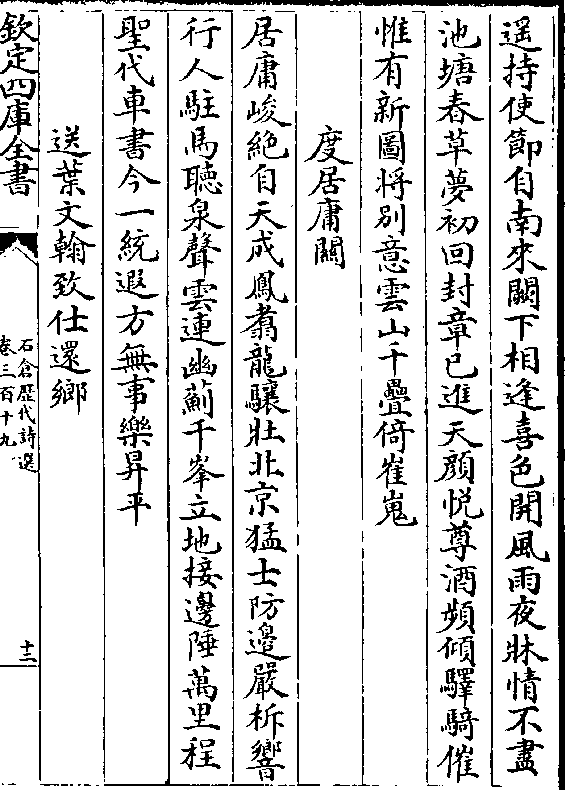 遥持使節自南來闕下相逢喜色開風雨夜牀情不盡
池塘春草夢初回封章已進天顔悦尊酒頻傾驛騎催
惟有新圖將别意雲山千疊倚崔嵬
度居庸關
居庸峻絶自天成鳳翥龍驤壯北京猛士防邊嚴柝響
行人駐馬聽泉聲雲連幽薊千峯立地接邊陲萬里程
聖代車書今一統遐方無事樂昇平
送葉文翰致仕還鄉
欽定四庫全書
石倉歷代詩選
卷三百十九
十二